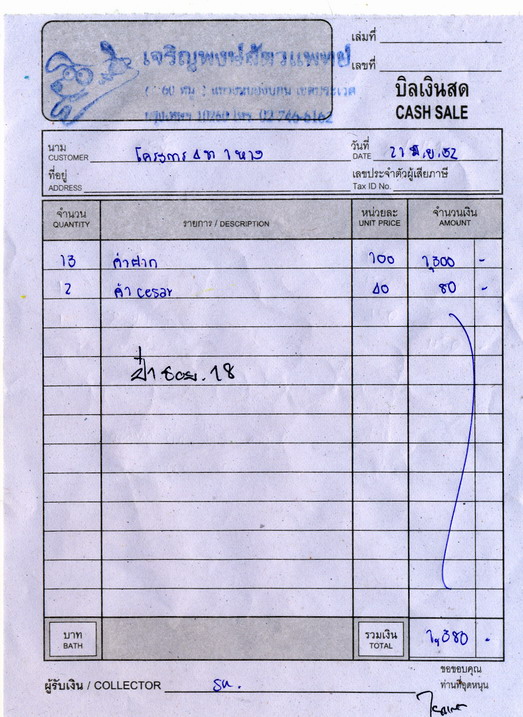 เจริญพงษ์สัตวแพทย์
กรุงเทพฯ 10260 โทร. 02-746-8162
เล่มที่
เลขที่
บิลเงินสด
CASH SALE
นาม
CUSTOMER โครงการ 4 ขา 1 หาง
วันที่
DATE 21 มิ.ย. 52
ที่อยู่
ADDRESS
เลขประจำตัวผู้เสียภาษี
Tax ID No.
จำนวน QUANTITY รายการ / DESCRIPTION หน่วยละ UNIT PRICE จำนวนเงิน AMOUNT
13 ค่าฝาก 100 1,300 -
2 ค่า cesar 40 80 -
ป้า ซอย. 18
บาท BATH รวมเงิน TOTAL 1,380 -
ผู้รับเงิน / COLLECTOR
ขอขอบคุณ
ท่านที่อุดหนุน